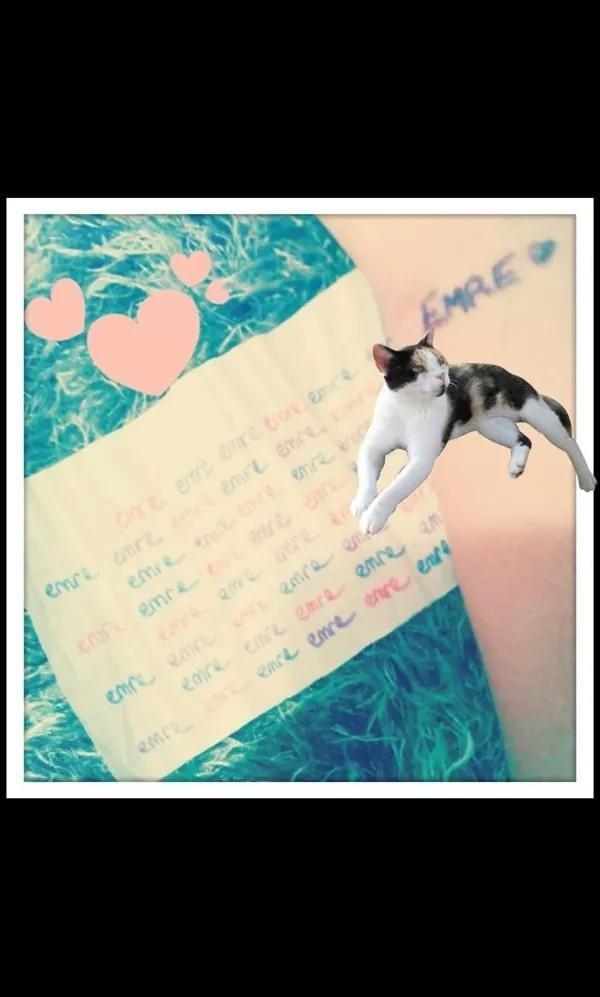 EMRE
emre emre emre emre emre
emre emre emre emre emre emre
emre emre emre emre emre emre
emre emre emre emre emre emre
emre emre emre emre emre emre
emre emre emre emre emre emre
emre emre emre emre
emre emre emre emre